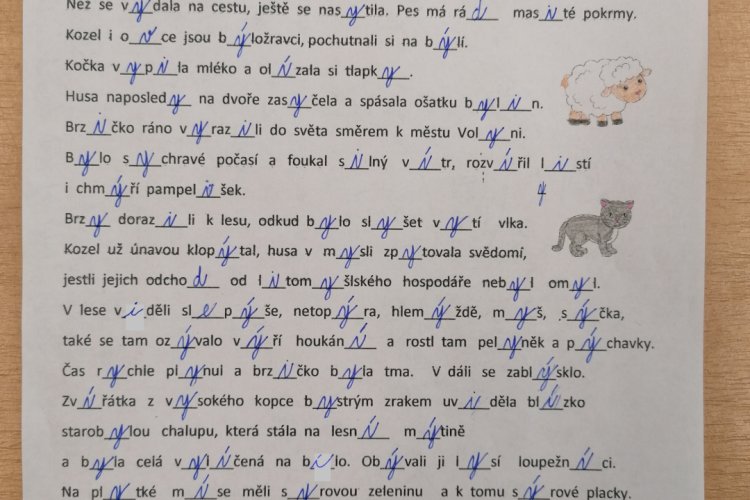 Než se vydala na cestu, ještě se nasytila. Pes má rád masité pokrmy.
Kozel i ovce jsou býložravci, pochutnali si na býlí.
Kočka vypila mléko a olízala si tlapky.
Husa naposledy na dvoře zasyčela a spásala ošatku bylin.
Brzičko ráno vyrazili do světa směrem k městu Volyni.
Bylo sychravé počasí a foukal silný vítr, rozvířil listí
i chmýří pampelišek.
Brzy dorazili k lesu, odkud bylo slyšet vytí vlka.
Kozel už únavou klopýtal, husa v mysli zpytovala svědomí,
jestli jejich odchod od litomyšlského hospodáře nebyl omyl.
V lese viděli slepýše, netopýra, hlemýždě, myš, sýčka,
také se tam ozývalo výří houkání a rostl tam pelyněk a pýchavky.
Čas rychle plynul a brzičko byla tma. V dáli se zablýsklo.
Zvířátka z vysokého kopce bystrým zrakem uviděla blízko
starobylou chalupu, která stála na lesní mýtině
a byla celá vylíčená na bilo. Obývali ji lysí loupežníci.
Na plytké míse měli syrovou zeleninu a k tomu sýrové placky.